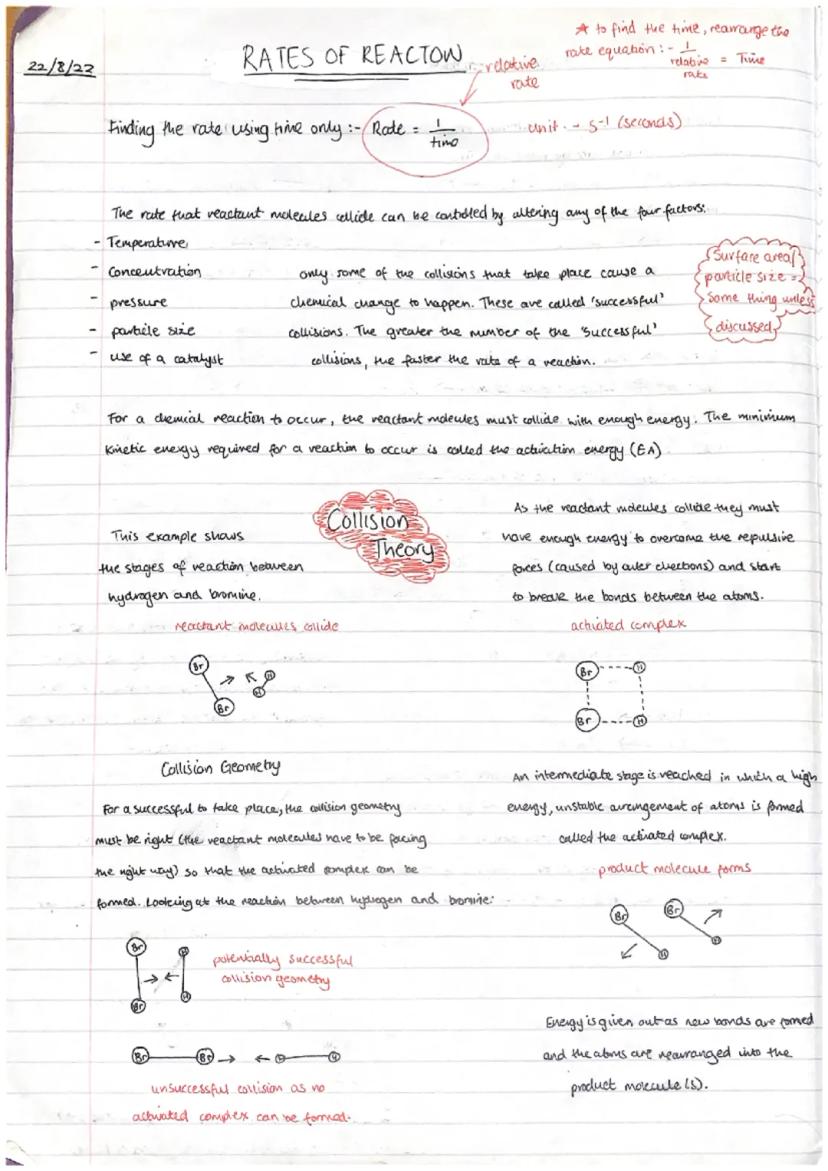 22/8/22
RATES OF REACTON
relative
rate
* to find the time, rearrange the
rate equation :- 1/relative rate = Time
Finding the rate using time only :- Rate = 1/time
unit - s⁻¹ (seconds)
The rate that reactant molecules collide can be controlled by altering any of the four factors:
- Temperature
- Concentration
- pressure
- particle size
- use of a catalyst
only some of the collisions that take place cause a
chemical change to happen. These are called 'successful'
collisions. The greater the number of the 'successful'
collisions, the faster the rate of a reaction.
Surface area/
particle size =
Same thing unless
discussed
For a chemical reaction to occur, the reactant molecules must collide with enough energy. The minimum
kinetic energy required for a reaction to occur is called the activation energy (EA)
Collision
Theory
This example shows
the stages of reaction between
hydrogen and bromine.
reactant molecules collide
Br
H
Br
H
As the reactant molecules collide they must
have enough energy to overcome the repulsive
forces (caused by outer electrons) and start
to break the bonds between the atoms.
activated complex
Br
H
Br
H
Collision Geometry
For a successful to take place, the collision geometry
must be right (the reactant molecules have to be facing
the right way) so that the activated complex can be
formed. Looking at the reaction between hydrogen and bromine:
Br
H
Br
H
potentially successful
collision geometry
Br
Br
H
H
unsuccessful collision as no
activated complex can be formed.
An intermediate stage is reached in which a high
energy, unstable arrangement of atoms is formed
called the activated complex.
product molecule forms
Br
Br
H
H
Energy is given out as new bonds are formed
and the atoms are rearranged into the
product molecule(s).